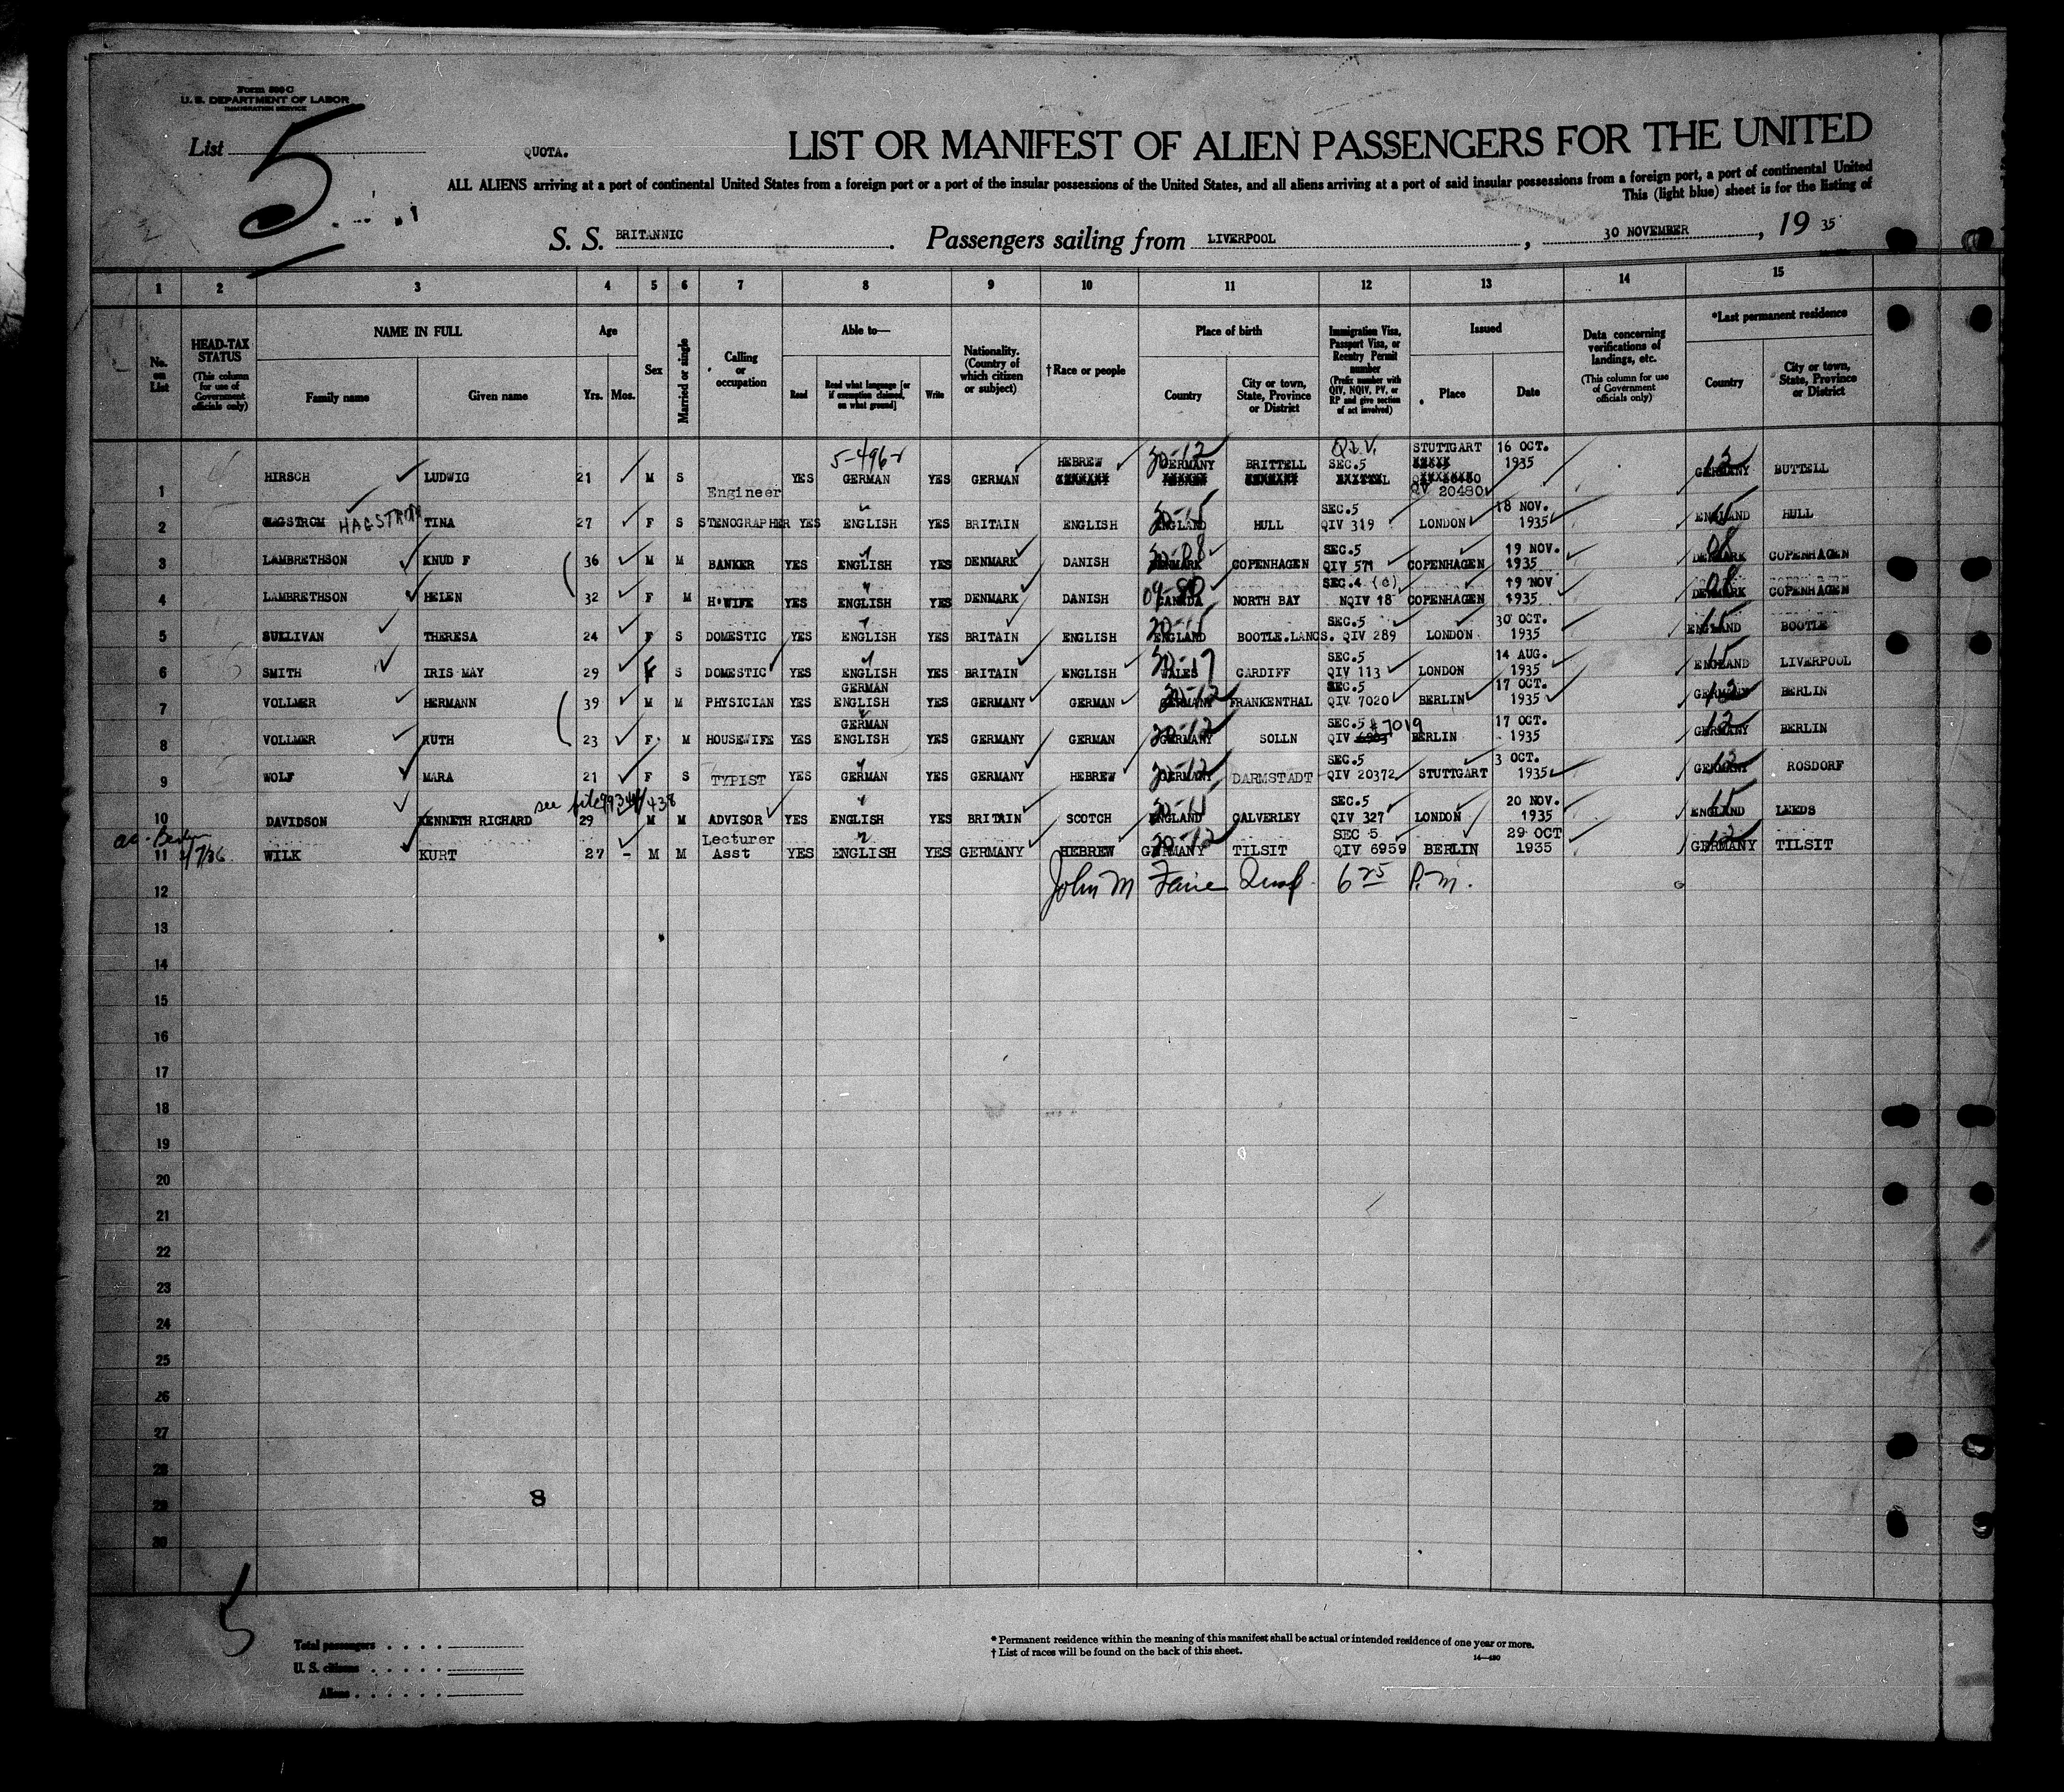 Form 500 C
U. S. DEPARTMENT OF LABOR
IMMIGRATION SERVICE
List 5
QUOTA.
LIST OR MANIFEST OF ALIEN PASSENGERS FOR THE UNITED
ALL ALIENS arriving at a port of continental United States from a foreign port or a port of the insular possessions of the United States, and all aliens arriving at a port of said insular possessions from a foreign port, a port of continental United
This (light blue) sheet is for the listing of
S. S. BRITANNIC . Passengers sailing from LIVERPOOL , 30 NOVEMBER , 19 35
1 2 3 4 5 6 7 8 9 10 11 12 13 14 15
No. on List
HEAD-TAX STATUS (This column for use of Government officials only)
NAME IN FULL Family name Given name
Age Yrs. Mos.
Sex
Married or single
Calling or occupation
Able to— Read Read what language [or if exemption claimed, on what ground] Write
Nationality. (Country of which citizen or subject)
† Race or people
Place of birth Country City or town, State, Province or District
Immigration Visa, Passport Visa, or Reentry Permit number (Prefix number with QIV, NQIV, PV, or RP and give section of act involved)
Issued Place Date
Data concerning verifications of landings, etc. (This column for use of Government officials only)
*Last permanent residence Country City or town, State, Province or District
1 HIRSCH LUDWIG 21 M S Engineer YES GERMAN YES GERMAN HEBREW 30-12 GERMANY BRITTELL Q.I.V. SEC.5 STUTTGART QV 20480 16 OCT. 1935 GERMANY BUTTELL
2 HAGSTROM TINA 27 F S STENOGRAPHER YES ENGLISH YES BRITAIN ENGLISH 30-15 ENGLAND HULL SEC.5 QIV 319 LONDON 18 NOV. 1935 15 ENGLAND HULL
3 LAMBRETHSON KNUD F 36 M M BANKER YES ENGLISH YES DENMARK DANISH 30-08 DENMARK COPENHAGEN SEC.5 QIV 571 COPENHAGEN 19 NOV. 1935 08 DENMARK COPENHAGEN
4 LAMBRETHSON HELEN 32 F M H·WIFE YES ENGLISH YES DENMARK DANISH CANADA NORTH BAY SEC.4 (c) NQIV 18 COPENHAGEN 19 NOV 1935 08 DENMARK COPENHAGEN
5 SULLIVAN THERESA 24 F S DOMESTIC YES ENGLISH YES BRITAIN ENGLISH 30-15 ENGLAND BOOTLE.LANCS. SEC.5 QIV 289 LONDON 30 OCT. 1935 15 ENGLAND BOOTLE
6 SMITH IRIS MAY 29 F S DOMESTIC YES ENGLISH YES BRITAIN ENGLISH 30-17 WALES CARDIFF SEC.5 QIV 113 LONDON 14 AUG. 1935 15 ENGLAND LIVERPOOL
7 VOLLMER HERMANN 39 M M PHYSICIAN YES GERMAN ENGLISH YES GERMANY GERMAN 30-12 GERMANY FRANKENTHAL SEC.5 QIV 7020 BERLIN 17 OCT. 1935 12 GERMANY BERLIN
8 VOLLMER RUTH 23 F M HOUSEWIFE YES GERMAN ENGLISH YES GERMANY GERMAN 30-12 GERMANY SOLLN SEC.5 QIV 7019 BERLIN 17 OCT. 1935 12 GERMANY BERLIN
9 WOLF MARA 21 F S TYPIST YES GERMAN YES GERMANY HEBREW 30-12 GERMANY DARMSTADT SEC.5 QIV 20372 STUTTGART 3 OCT. 1935 12 GERMANY ROSDORF
10 DAVIDSON KENNETH RICHARD 29 M M ADVISOR YES ENGLISH YES BRITAIN SCOTCH 30-15 ENGLAND CALVERLEY SEC.5 QIV 327 LONDON 20 NOV. 1935 15 ENGLAND LEEDS
11 WILK KURT 27 - M M Lecturer Asst YES ENGLISH YES GERMANY HEBREW 30-12 GERMANY TILSIT SEC 5 QIV 6959 BERLIN 29 OCT 1935 12 GERMANY TILSIT
12 John M 6 25 P.M.
13
14
15
16
17
18
19
20
21
22
23
24
25
26
27
28
29
30
8
5
Total passengers
U. S. citizens
Aliens
* Permanent residence within the meaning of this manifest shall be actual or intended residence of one year or more.
† List of races will be found on the back of this sheet.
14—430